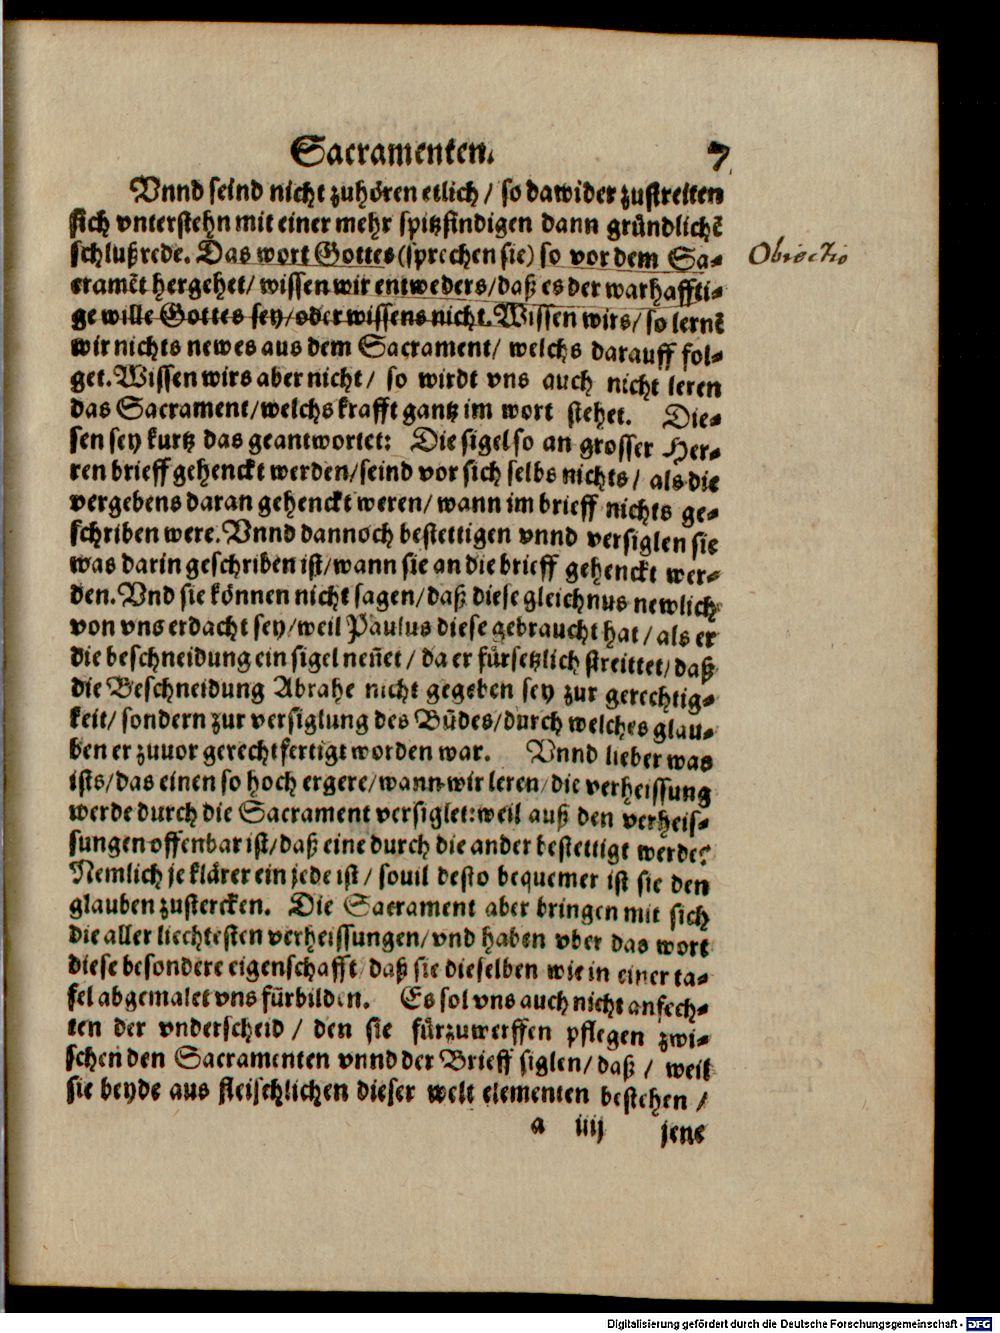 Sacramenten. 7
Vnnd seind nicht zuhören etlich / so dawider zustreiten
sich vnterstehn mit einer mehr spitzfindigen dann gründlichē
schlußrede. Das wort Gottes (sprechen sie) so vor dem Sa-
cramēt hergehet / wissen wir entweders / daß es der warhaffti-
ge wille Gottes sey / oder wissens nicht. Wissen wirs / so lernē
wir nichts newes aus dem Sacrament / welchs darauff fol-
get. Wissen wirs aber nicht / so wirdt vns auch nicht leren
das Sacrament / welchs krafft gantz im wort stehet. Die-
sen sey kurtz das geantwortet: Die sigel so an grosser Her-
ren brieff gehenckt werden / seind vor sich selbs nichts / als die
vergebens daran gehenckt weren / wann im brieff nichts ge-
schriben were. Vnnd dannoch bestettigen vnnd versiglen sie
was darin geschriben ist / wann sie an die brieff gehenckt wer-
den. Vnd sie können nicht sagen / daß diese gleichnus newlich
von vns erdacht sey / weil Paulus diese gebraucht hat / als er
die beschneidung ein sigel neñet / da er fürsetzlich streittet / daß
die Beschneidung Abrahe nicht gegeben sey zur gerechtig-
keit / sondern zur versiglung des Būdes / durch welches glau-
ben er zuuor gerechtfertigt worden war. Vnnd lieber was
ists / das einen so hoch ergere / wann wir leren / die verheissung
werde durch die Sacrament versiglet: weil auß den verheis-
sungen offenbar ist / daß eine durch die ander bestettigt werde?
Nemlich je klärer ein jede ist / souil desto bequemer ist sie den
glauben zustercken. Die Sacrament aber bringen mit sich
die aller liechtesten verheissungen / vnd haben vber das wort
diese besondere eigenschafft / daß sie dieselben wie in einer ta-
fel abgemalet vns fürbilden. Es sol vns auch nicht anfech-
ten der vnderscheid / den sie fürzuwerffen pflegen zwi-
schen den Sacramenten vnnd der Brieff siglen / daß / weil
sie beyde aus fleischlichen dieser welt elementen bestehen /
a iiij jene
Obiectio
Digitalisierung gefördert durch die Deutsche Forschungsgemeinschaft - DFG